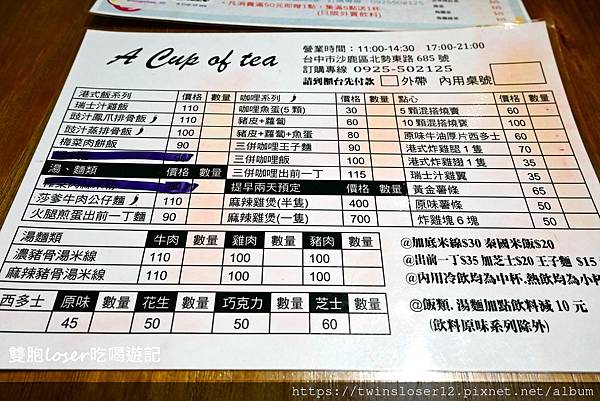 A Cup of tea
A Cup of tea
營業時間：11:00-14:30 17:00-21:00
台中市沙鹿區北勢東路685號
訂購專線 0925-502125
請到櫃台先付款 外帶 內用桌號
港式飯系列 價格 數量
瑞士汁雞飯 110
豉汁鳳爪排骨飯 110
豉汁蒸排骨飯 100
梅菜肉餅飯 90
湯、麵類 價格 數量
莎爹牛肉公仔麵 110
火腿煎蛋出前一丁麵 90
咖哩系列 價格 數量
咖哩魚蛋(5顆) 30
豬皮+蘿蔔 60
豬皮+蘿蔔+魚蛋 80
三併咖哩王子麵 90
三併咖哩飯 100
三併咖哩出前一丁 115
提早兩天預定 價格 數量
麻辣雞煲(半隻) 400
麻辣雞煲(一隻) 700
點心 價格 數量
5顆混搭燒賣 60
10顆混搭燒賣 100
原味牛油厚片西多士 60
港式炸雞腿1隻 70
港式炸雞翅1隻 35
瑞士汁雞翼 35
黃金薯條 65
原味薯條 50
炸雞塊6塊 50
湯麵類 牛肉 數量 雞肉 數量 豬肉 數量
濃豬骨湯米線 110 100 100
麻辣豬骨湯米線 110 100 100
西多士 原味 數量 花生 數量 巧克力 數量 芝士 數量
45 50 50 60
@加底米線$30 泰國米飯$20
@出前一丁$35 加芝士$20 王子麵 $15
@內用冷飲均為中杯,熱飲均為小杯
@飯類.湯麵加點飲料減10元
(飲料原味系列除外)
雙胞loser吃喝遊記
https://twinsloser12.pixnet.net/album